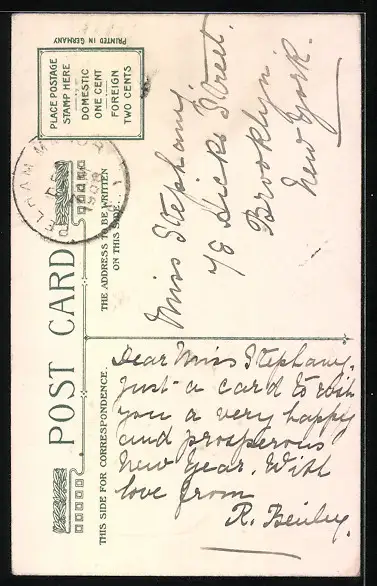 PRINTED IN GERMANY
PLACE POSTAGE
STAMP HERE
DOMESTIC
ONE CENT
FOREIGN
TWO CENTS
POST CARD
THE ADDRESS TO BE WRITTEN
ON THIS SIDE.
THIS SIDE FOR CORRESPONDENCE.
Miss Stephany.
78 Hicks Street.
Brooklyn.
New York.
Dear Miss Stephany.
Just a card to wish
you a very happy
and prosperous
New Year. With
love from
R.